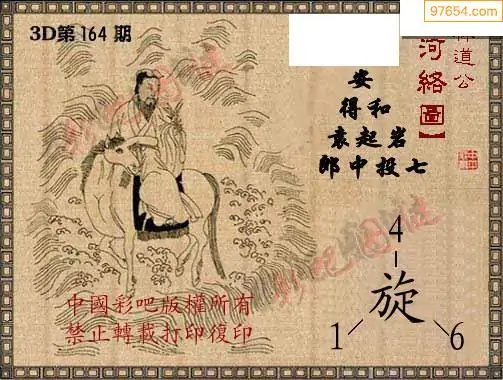 97654.com
3D第164期
道公
河絡圖】
安
得和
袁起岩
郎中投七
4
旋
1
6
中國彩吧版權所有
禁止轉載打印復印
彩吧圖謎